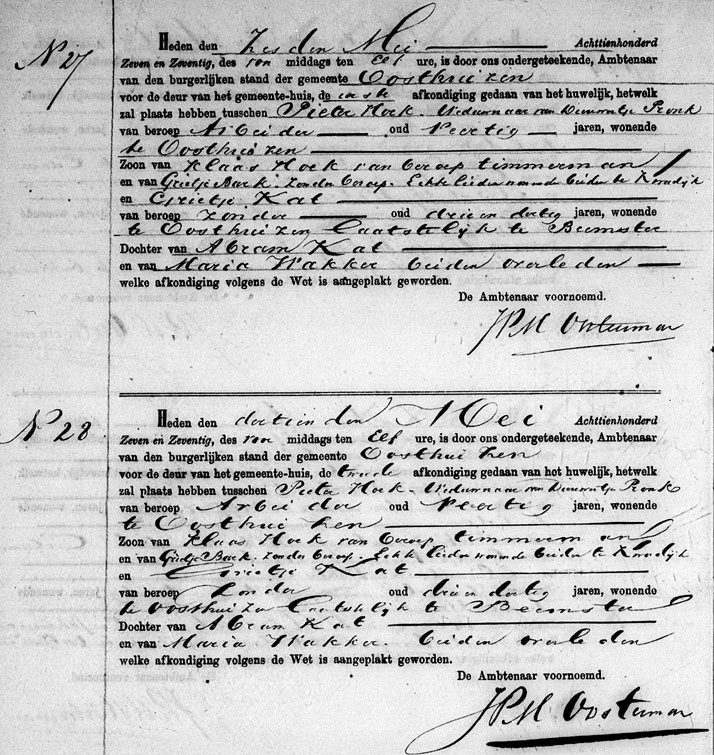 N 27
Heden den Zesden Mei Achttienhonderd
Zeven en Zeventig, des voor middags ten Elf ure, is door ons ondergeteekende, Ambtenaar
van den burgerlijken stand der gemeente Oosthuizen
voor de deur van het gemeente-huis, de eerste afkondiging gedaan van het huwelijk, hetwelk
zal plaats hebben tusschen Pieter Hoek. Weduwnaar van Pronk
van beroep Arbeider oud Veertig jaren, wonende
te Oosthuizen
Zoon van Klaas Hoek van beroep timmerman
en van Grietje Back. Zonder beroep. Echtelieden wonende beiden te Kwadijk
en Grietje Kat
van beroep Zonder oud drie en dertig jaren, wonende
te Oosthuizen laatstelijk te Beemster
Dochter van Abram Kat
en van Maria Wakker beiden overleden
welke afkondiging volgens de Wet is aangeplakt geworden.
De Ambtenaar voornoemd.
JPM Oosterman
N 28
Heden den dertienden Mei Achttienhonderd
Zeven en Zeventig, des voor middags ten Elf ure, is door ons ondergeteekende, Ambtenaar
van den burgerlijken stand der gemeente Oosthuizen
voor de deur van het gemeente-huis, de tweede afkondiging gedaan van het huwelijk, hetwelk
zal plaats hebben tusschen Pieter Hoek. Weduwnaar van Pronk
van beroep Arbeider oud Veertig jaren, wonende
te Oosthuizen
Zoon van Klaas Hoek van beroep timmerman
en van Grietje Back. Zonder beroep. Echtelieden wonende beiden te Kwadijk
en Grietje Kat
van beroep Zonder oud drie en dertig jaren, wonende
te Oosthuizen laatstelijk te Beemster
Dochter van Abram Kat
en van Maria Wakker. beiden overleden
welke afkondiging volgens de Wet is aangeplakt geworden.
De Ambtenaar voornoemd.
JPM Oosterman